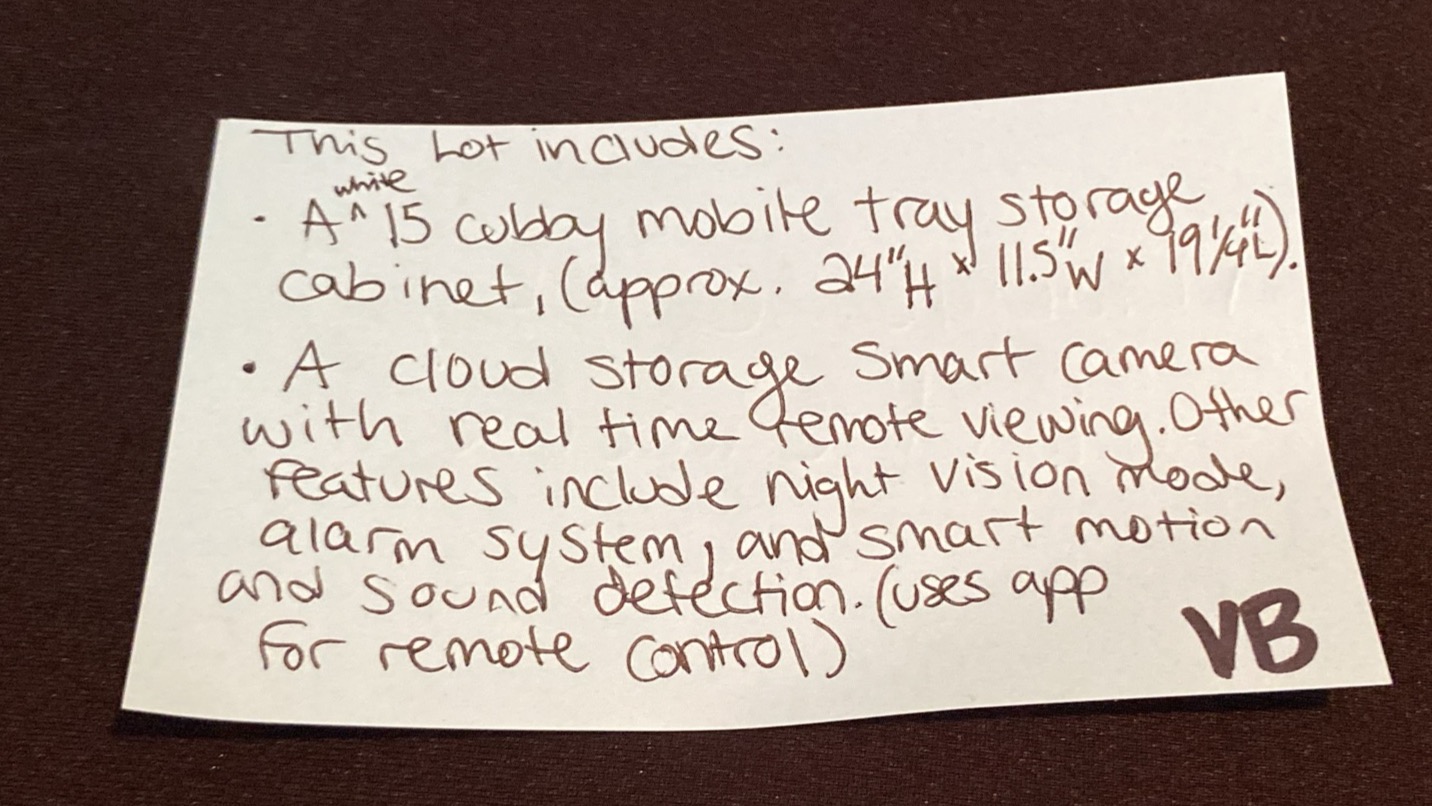 This Lot includes:
white
• A ^ 15 cubby mobile tray storage
cabinet, (approx. 24"H x 11.5"W x 19 1/4"L).
• A cloud storage smart camera
with real time remote viewing. Other
features include night vision mode,
alarm system, and smart motion
and sound detection. (uses app
for remote control)
VB